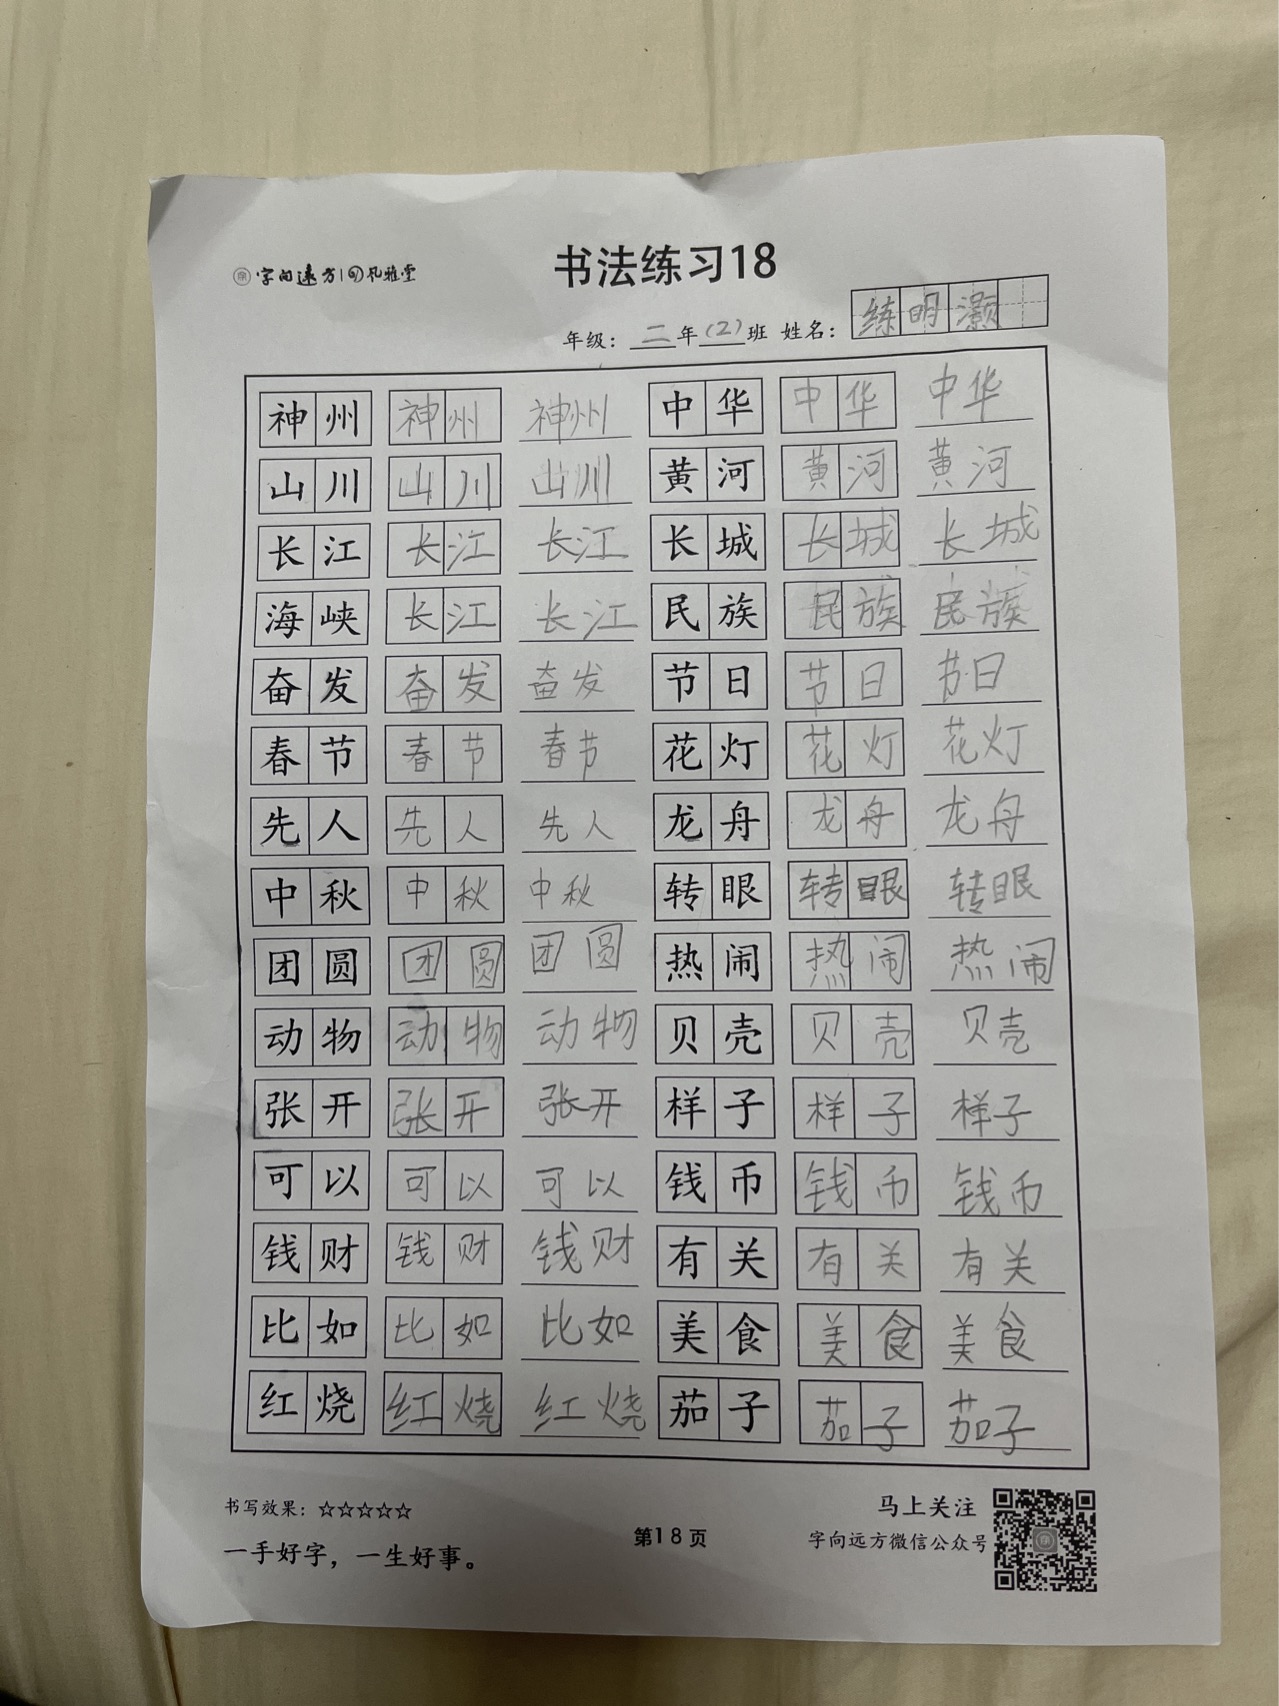 字向远方 风雅堂
书法练习18
年级：二年(2)班 姓名：练明灏
神州 神州 神州 中华 中华 中华
山川 山川 山川 黄河 黄河 黄河
长江 长江 长江 长城 长城 长城
海峡 长江 长江 民族 民族 民族
奋发 奋发 奋发 节日 节日 节日
春节 春节 春节 花灯 花灯 花灯
先人 先人 先人 龙舟 龙舟 龙舟
中秋 中秋 中秋 转眼 转眼 转眼
团圆 团圆 团圆 热闹 热闹 热闹
动物 动物 动物 贝壳 贝壳 贝壳
张开 张开 张开 样子 样子 样子
可以 可以 可以 钱币 钱币 钱币
钱财 钱财 钱财 有关 有关 有关
比如 比如 比如 美食 美食 美食
红烧 红烧 红烧 茄子 茄子 茄子
书写效果：☆☆☆☆☆
一手好字，一生好事。
第18页
马上关注
字向远方微信公众号